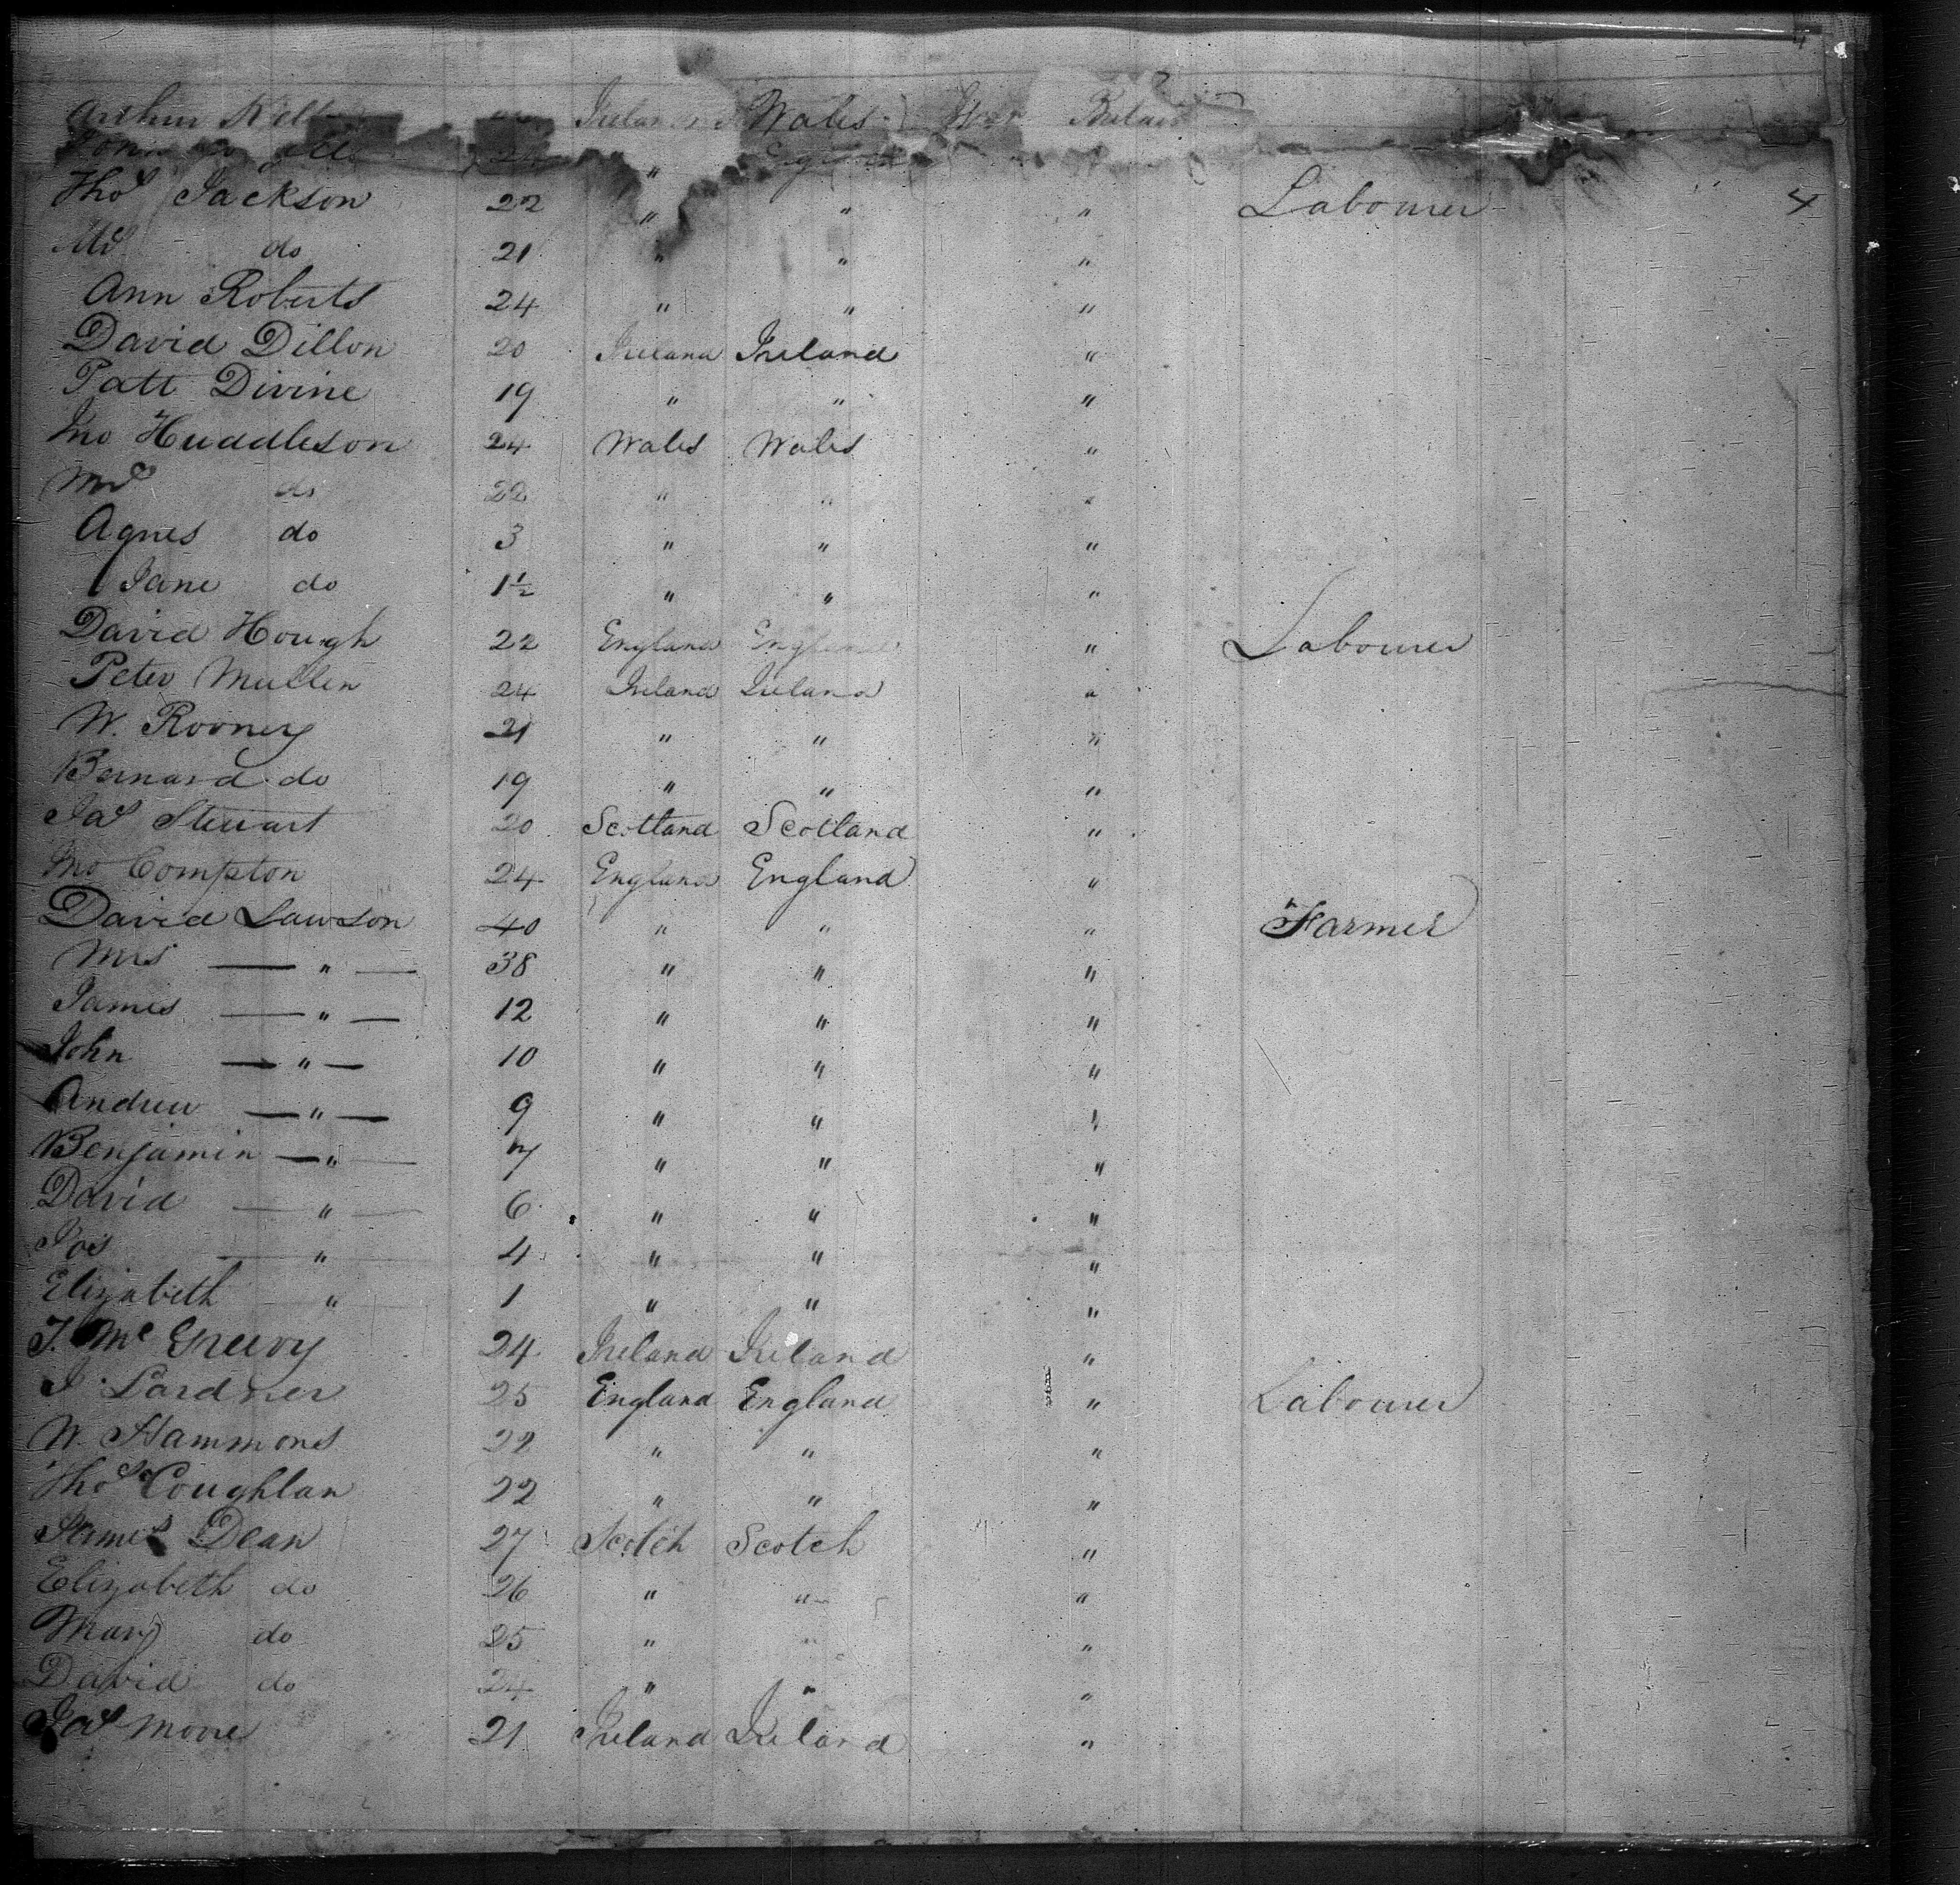 Arthur Ireland Wales Great Britain
John 24 " England "
Thos Jackson 22 " " " Labourer 4
Mrs do 21 " " "
Ann Roberts 24 " " "
David Dillon 20 Ireland Ireland "
Patt Divine 19 " " "
Jno Huddleson 24 Wales Wales "
Mrs do 22 " " "
Agnes do 3 " " "
Jane do 1½ " " "
David Hough 22 England England " Labourer
Peter Mullen 24 Ireland Ireland "
W. Rooney 21 " " "
Bernard do 19 " " "
Jas Stewart 20 Scotland Scotland "
Jno Compton 24 England England "
David Lawson 40 " " " Farmer
Mrs — " — 38 " " "
James — " — 12 " " "
John — " — 10 " " "
Andrew — " — 9 " " "
Benjamin — " — 7 " " "
David — " — 6 " " "
Jos — " — 4 " " "
Elizabeth — " — 1 " " "
J. Mc Greevy 24 Ireland Ireland "
J. Lardner 25 England England " Labourer
W. Hammond 22 " " "
Thos Coughlan 22 " " "
James Dean 27 Scotch Scotch "
Elizabeth do 26 " " "
Mary do 25 " " "
David do 24 " " "
Jas Moore 21 Ireland Ireland "